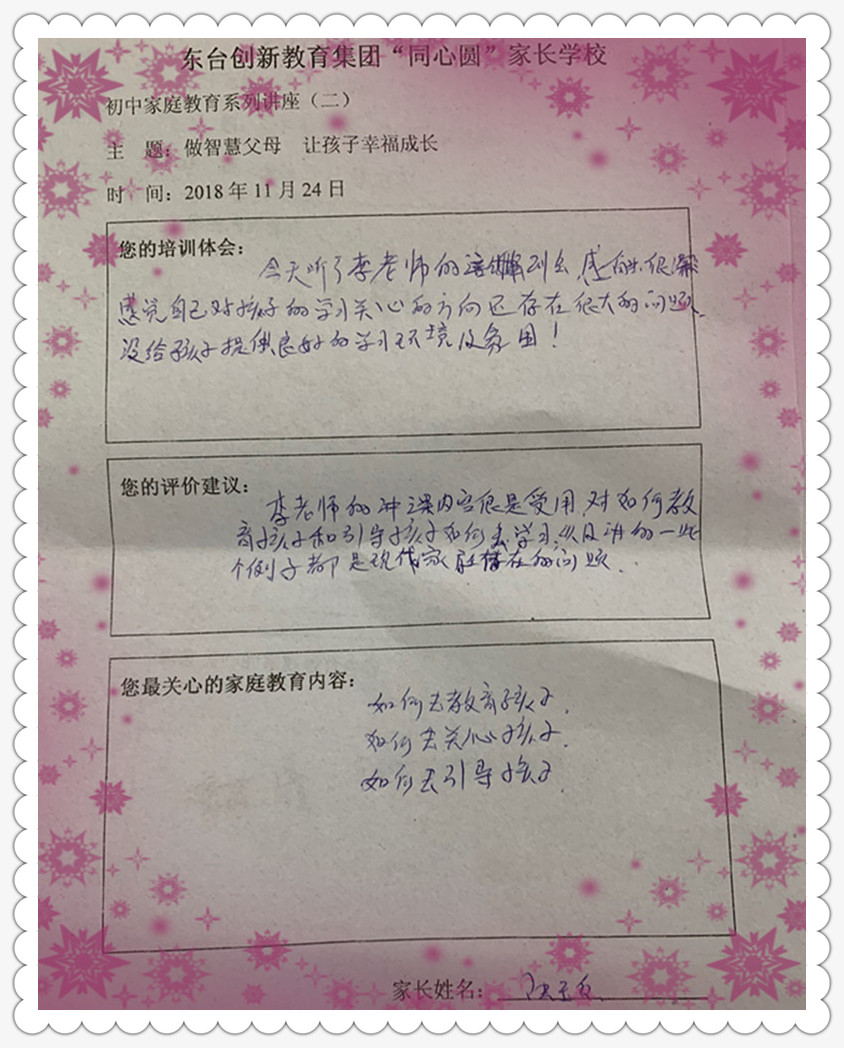 东台创新教育集团“同心圆”家长学校
初中家庭教育系列讲座（二）
主 题：做智慧父母 让孩子幸福成长
时 间：2018年11月24日
您的培训体会：
今天听了李老师的 感触很深
感觉自己对孩子的学习关心的方向还存在很大的问题.
没给孩子提供良好的学习环境及氛围！
您的评价建议：
李老师的讲课内容很是受用,对如何教
育孩子和引导孩子如何去学习.以及讲的一些
个例子都是现代家庭存在的问题.
您最关心的家庭教育内容：
如何去教育孩子.
如何去关心孩子.
如何去引导孩子
家长姓名：